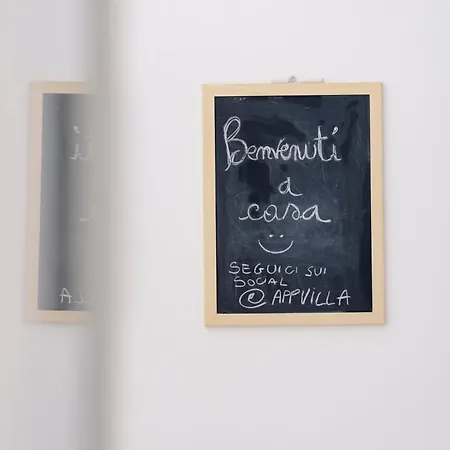 Benvenuti
a
casa
SEGUICI SUI
SOCIAL
@ APPVILLA